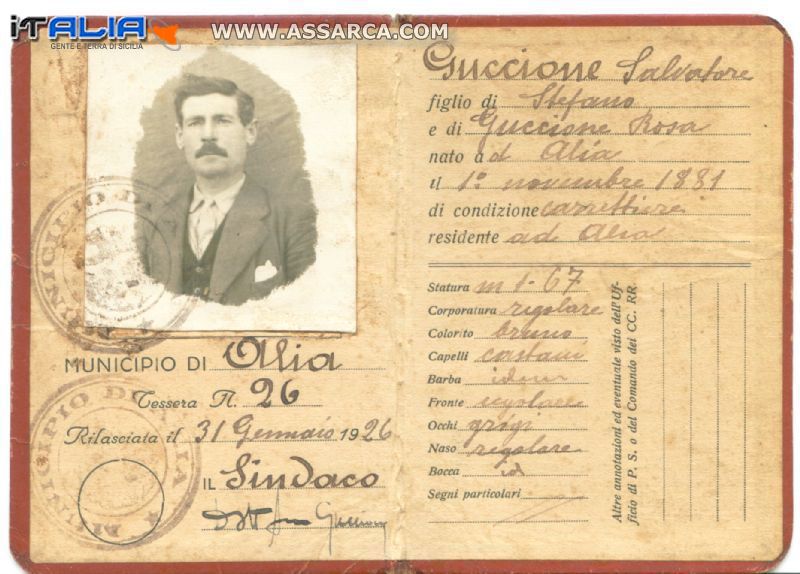 iTALIA
GENTE E TERRA DI SICILIA
WWW.ASSARCA.COM
MUNICIPIO DI
MUNICIPIO DI Alia
Tessera N. 26
Rilasciata il 31 Gennaio 1926
IL Sindaco
MUNICIPIO DI ALIA
Guccione Salvatore
figlio di Stefano
e di Guccione Rosa
nato ad Alia
il 1° novembre 1881
di condizione carrettiere
residente ad Alia
Statura m 1-67
Corporatura regolare
Colorito bruno
Capelli castani
Barba idem
Fronte regolare
Occhi grigi
Naso regolare
Bocca id
Segni particolari
Altre annotazioni ed eventuale visto dell'Uf-
ficio di P. S. o del Comando dei CC. RR.